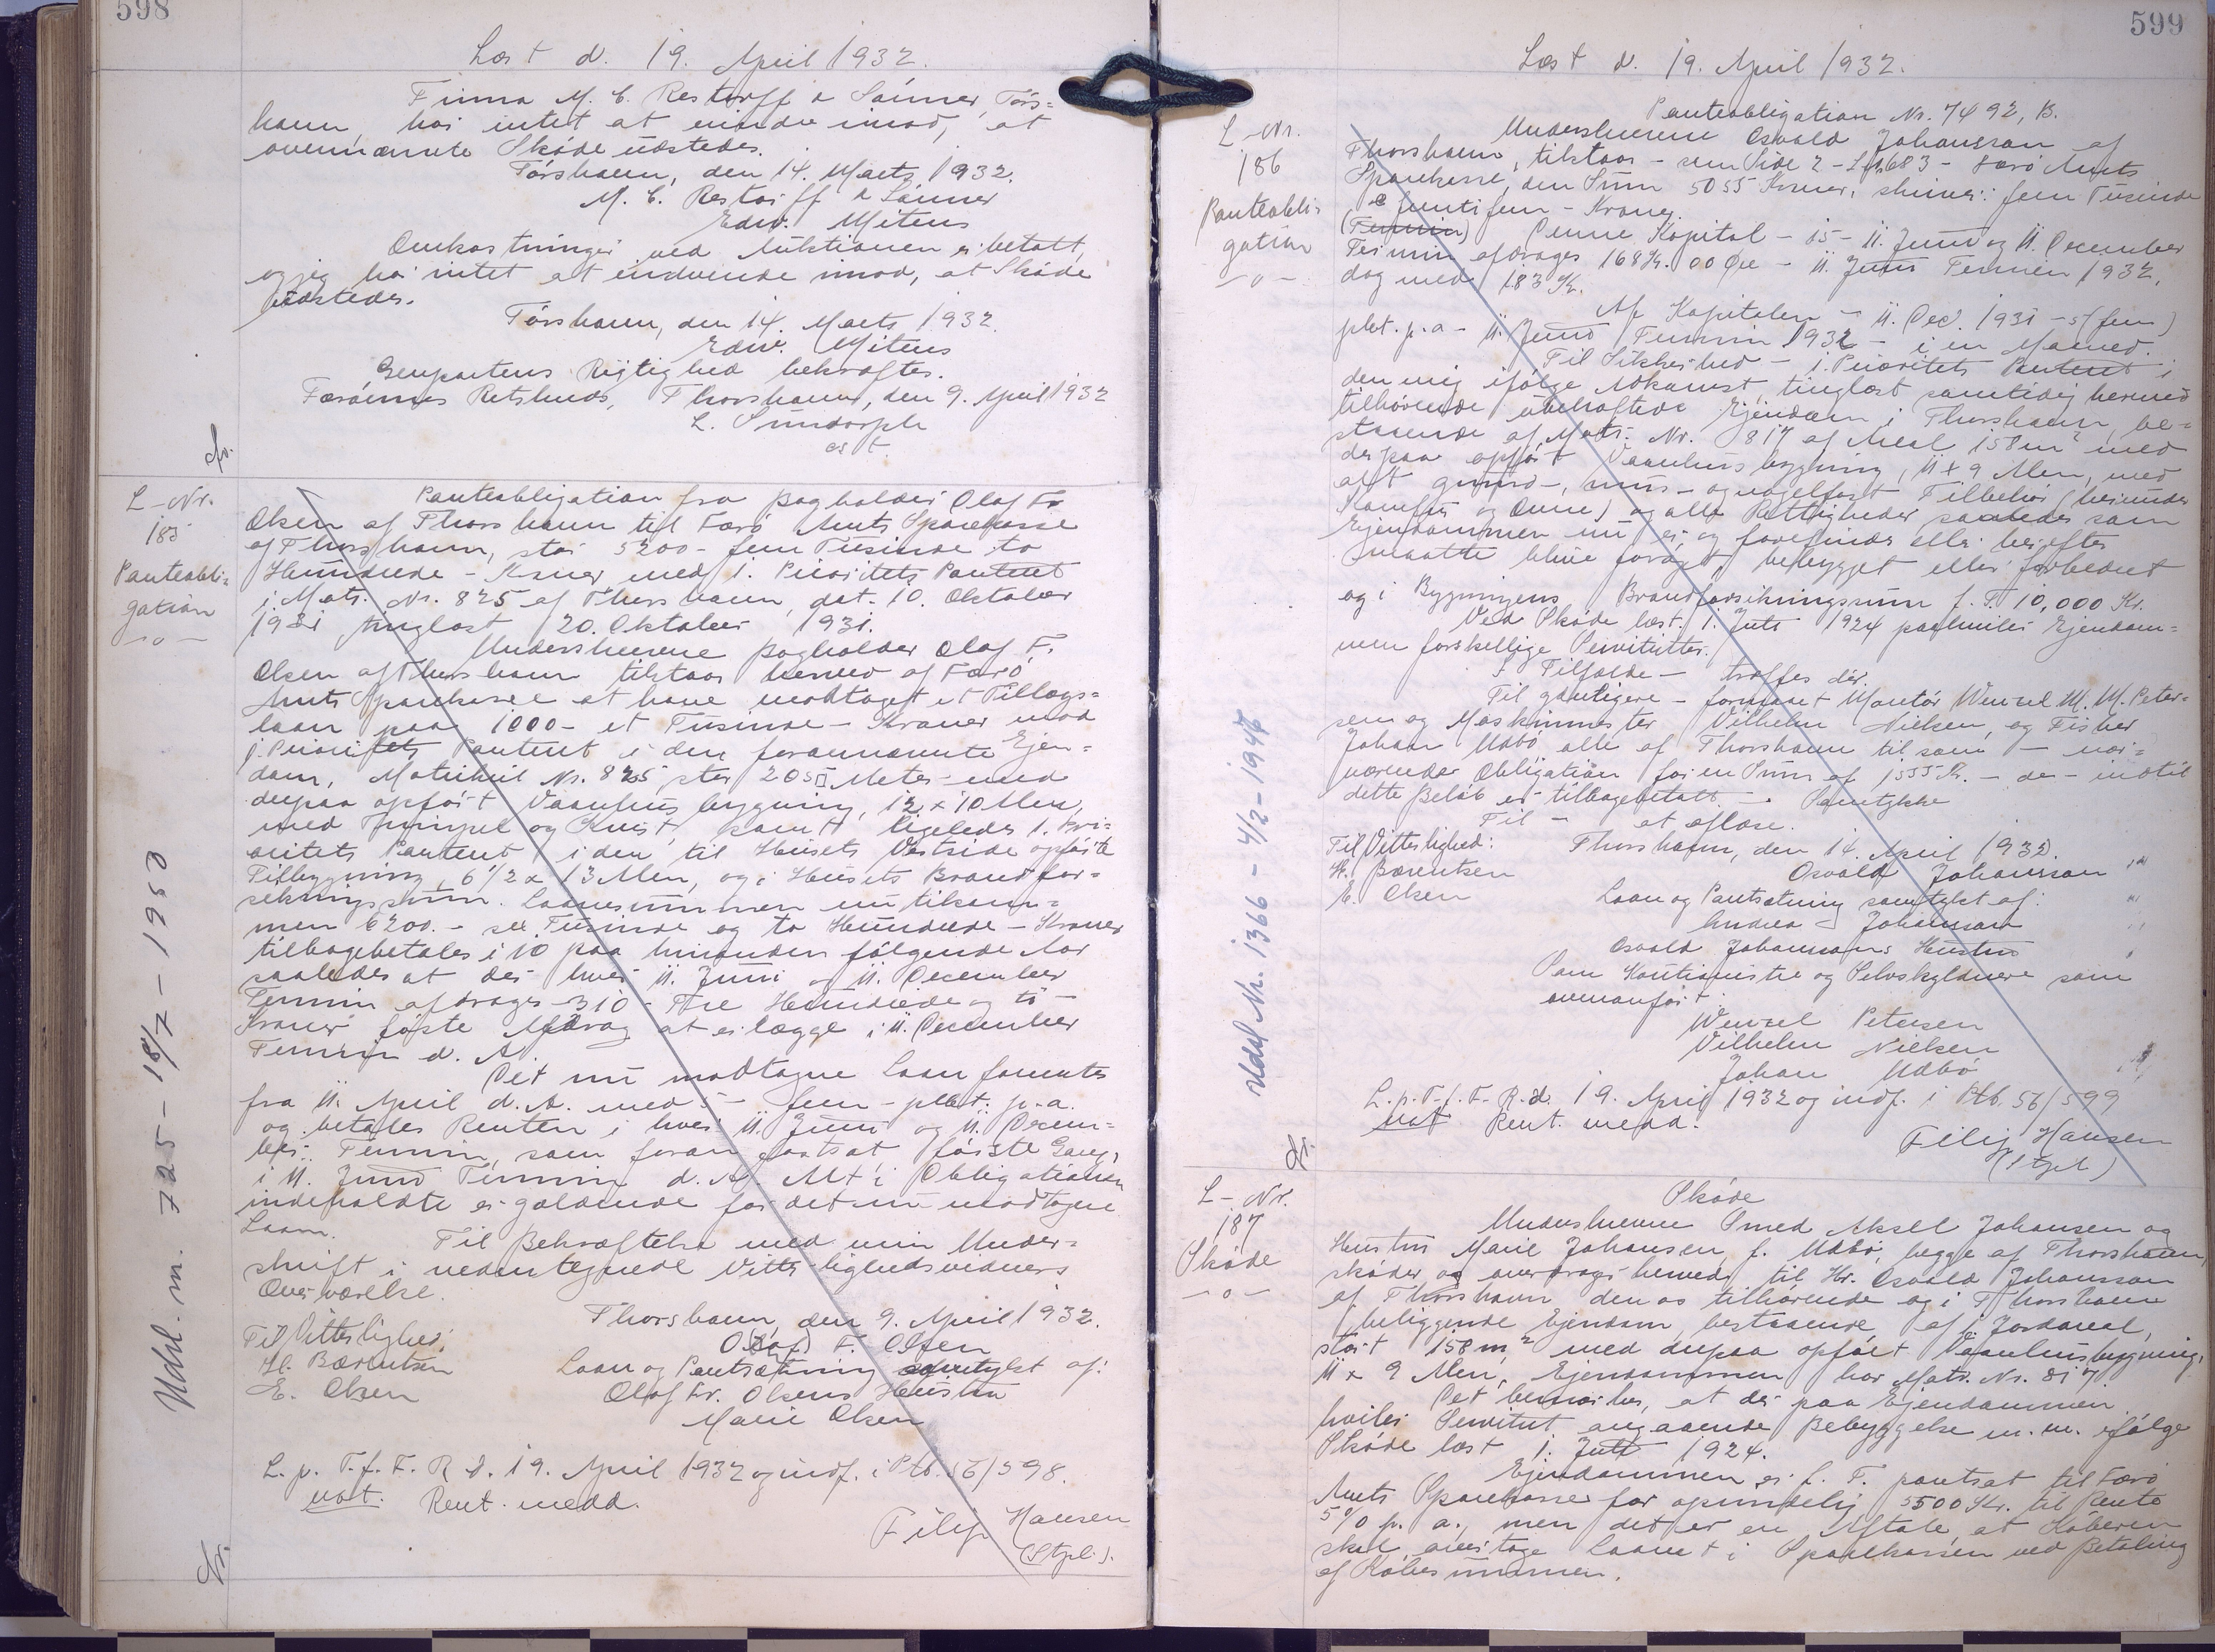 598
Læst d. 19. April 1932.
Firma M. C. Restorff & Sønner, Tórs=
havn, har intet at erindre imod, at
ovennævnte Skøde udstedes.
Tórshavn, den 14. Marts 1932.
M. C. Restorff & Sønner
Edw. Mitens
Omkostninger ved Auktionen er betalt,
og jeg har intet at indvende imod, at Skøde
udstedes.
Tórshavn, den 14. Marts 1932.
Edw. Mitens
Genpartens Rigtighed bekræftes.
Færøernes Retskreds, Thorshavn, den 9. April 1932
L. Sundorph
cst.
L-Nr.
185
Panteobli=
gation
-o-
Panteobligation fra Bogholder Olaf Fr.
Olsen af Thorshavn til Færø Amts Sparekasse
af Thorshavn, stor 5200 - fem Tusinde to
Hundrede - Kroner med 1. Prioritets Panteret
i Matr. Nr. 825 af Thorshavn, dat. 10. Oktober
1931 tinglæst 20. Oktober 1931.
Underskrevne Bogholder Olaf F.
Olsen af Thorshavn tilstaar herved af Færø
Amts Sparekasse at have modtaget et Tillægs=
laan paa 1000 - et Tusinde - Kroner mod
1. Prioritets Panteret i den forannævnte Ejen=
dom, Matrikul Nr. 825, stor 205 □ Meter med
derpaa opført Vaanhusbygning, 12 x 10 Alen,
med Frimpel og Kvist, samt ligeledes 1. Pri=
oritets Panteret i den til Husets Vestside opførte
Tilbygning, 6 1/2 x 13 Alen, og i Husets Brandfor=
sikringssum. Laanesummen nu tilsam=
men 6200. - sex Tusinde og to Hundrede - Kroner
tilbagebetales i 10 paa hinanden følgende Aar
saaledes at der hver 11. Juni og 11. December
Termin afdrages 310 - Tre Hundrede og ti -
Kroner første Afdrag at erlægge i 11. December
Termin d. A.
Det nu modtagne Laan forrentes
fra 11. April d. A. med 5 - fem - pCt. p. a.
og betales Renten i hver 11. Juni og 11. Decem=
ber Termin, som foran fortsat første Gang,
i 11. Juni Termin d. A. Alt i Obligationen
indeholdte er gældende for det nu modtagne
Laan.
Til Bekræftelse med min Under=
skrift i nedentegnede Vitterlighedsvidners
Overværelse.
Thorshavn, den 9. April 1932.
Til Vitterlighed:
O(laf) F. Olsen
H. Bærentsen
Laan og Pantsætning samtykt af:
E. Olsen
Olaf Fr. Olsens Hustru
Marie Olsen
L. p. T. f. F. R. d. 19. April 1932 og indf. i Ptb. 56/598.
not. Rent. medd.
Filip Hansen
(Stpl.).
Udsl. m. 725 - 18/7 - 1953
599
Læst d. 19. April 1932.
L-Nr.
186
Panteobli=
gation
-o-
Panteobligation Nr. 7492, B.
Underskrevne Osvald Johansson af
Thorshavn, tilstaar - som Side 2 - L Nr. 683 - Færø Amts
Sparekasse, den Sum 5055 Kroner, skriver: fem Tusinde
femtifem - Kroner.
(Termin) Denne Kapital - 15 - 11. Juni og 11. December
Termin afdrages 168 Kr. 00 Øre - 11. Juni Termin 1932,
dog med 183 Kr.
Af Kapitalen - 11. Dec. 1931 - 5 (fem)
pCt. p. a - 11. Juni Termin 1932 - i en Maaned.
Til Sikkerhed - 1. Prioritets Panteret i
den mig ifølge Adkomst, tinglæst samtidig hermed
tilhørende ubehæftede Ejendom i Thorshavn, be=
staaende af Matr. Nr. 817 af Areal 158 m² med
derpaa opført Vaanhusbygning, 11 x 9 Alen, med
alt grund-, mur- og nagelfast Tilbehør (herunder
Komfur og Ovne) og alle Rettigheder saaledes som
Ejendommen nu er og forefindes eller herefter
maatte blive forøget, bebygget eller forbedret
og i Bygningens Brandforsikringssum f. T. 10,000 Kr.
Ved Skøde læst 1. Juli 1924 paahviler Ejendom=
men forskellige Servitutter.
I Tilfælde - træffes dér.
Til yderligere - formaaet Montør Wenzel M. M. Peter=
sen og Maskinmester Vilhelm Nielsen, og Fisker
Johan Udbø, alle af Thorshavn til som - nær=
værende Obligation for en Sum af 1555 Kr. - de - indtil
dette Beløb er tilbagebetalt -. Samtykke
Til - at aflæse.
Til Vitterlighed:
Thorshavn, den 14. April 1932.
H. Bærentsen
Osvald Johansson
E. Olsen
Laan og Pantsætning samtykt af:
Andrea Johansson
Osvald Johanssons Hustru
Som Kautionister og Selvskyldnere som
ovenanført:
Wenzel Petersen
Vilhelm Nielsen
Johan Udbø
L. p. T. f. F. R. d. 19. April 1932 og indf. i Ptb. 56/599
not Rent. medd.
Filip Hansen
(Stpl.)
Udsl Nr. 1366 - 4/2 - 194
L-Nr.
187
Skøde
-o-
Skøde
Underskrevne Smed Aksel Johansen og
Hustru Marie Johansen, f. Udbø, begge af Thorshavn,
skøder og overdrager herved til Hr. Osvald Johansson
af Thorshavn den os tilhørende og i Thorshavn
beliggende Ejendom, bestaaende af 1 Jordareal,
stort 158 m² med derpaa opført Vaanhusbygning,
11 x 9 Alen, Ejendommen har Matr. Nr. 817
Det bemærkes, at der paa Ejendommen
hviler Servitut angaaende Bebyggelse m. m. ifølge
Skøde læst 1. Juli 1924.
Ejendommen er f. T. pantsat til Færø
Amts Sparekasse for oprindelig 5500 Kr. til Rente
5% p. a., men det er en Aftale, at Køberen
skal overtage Laanet i Sparekassen ved Betaling
af Købesummen.